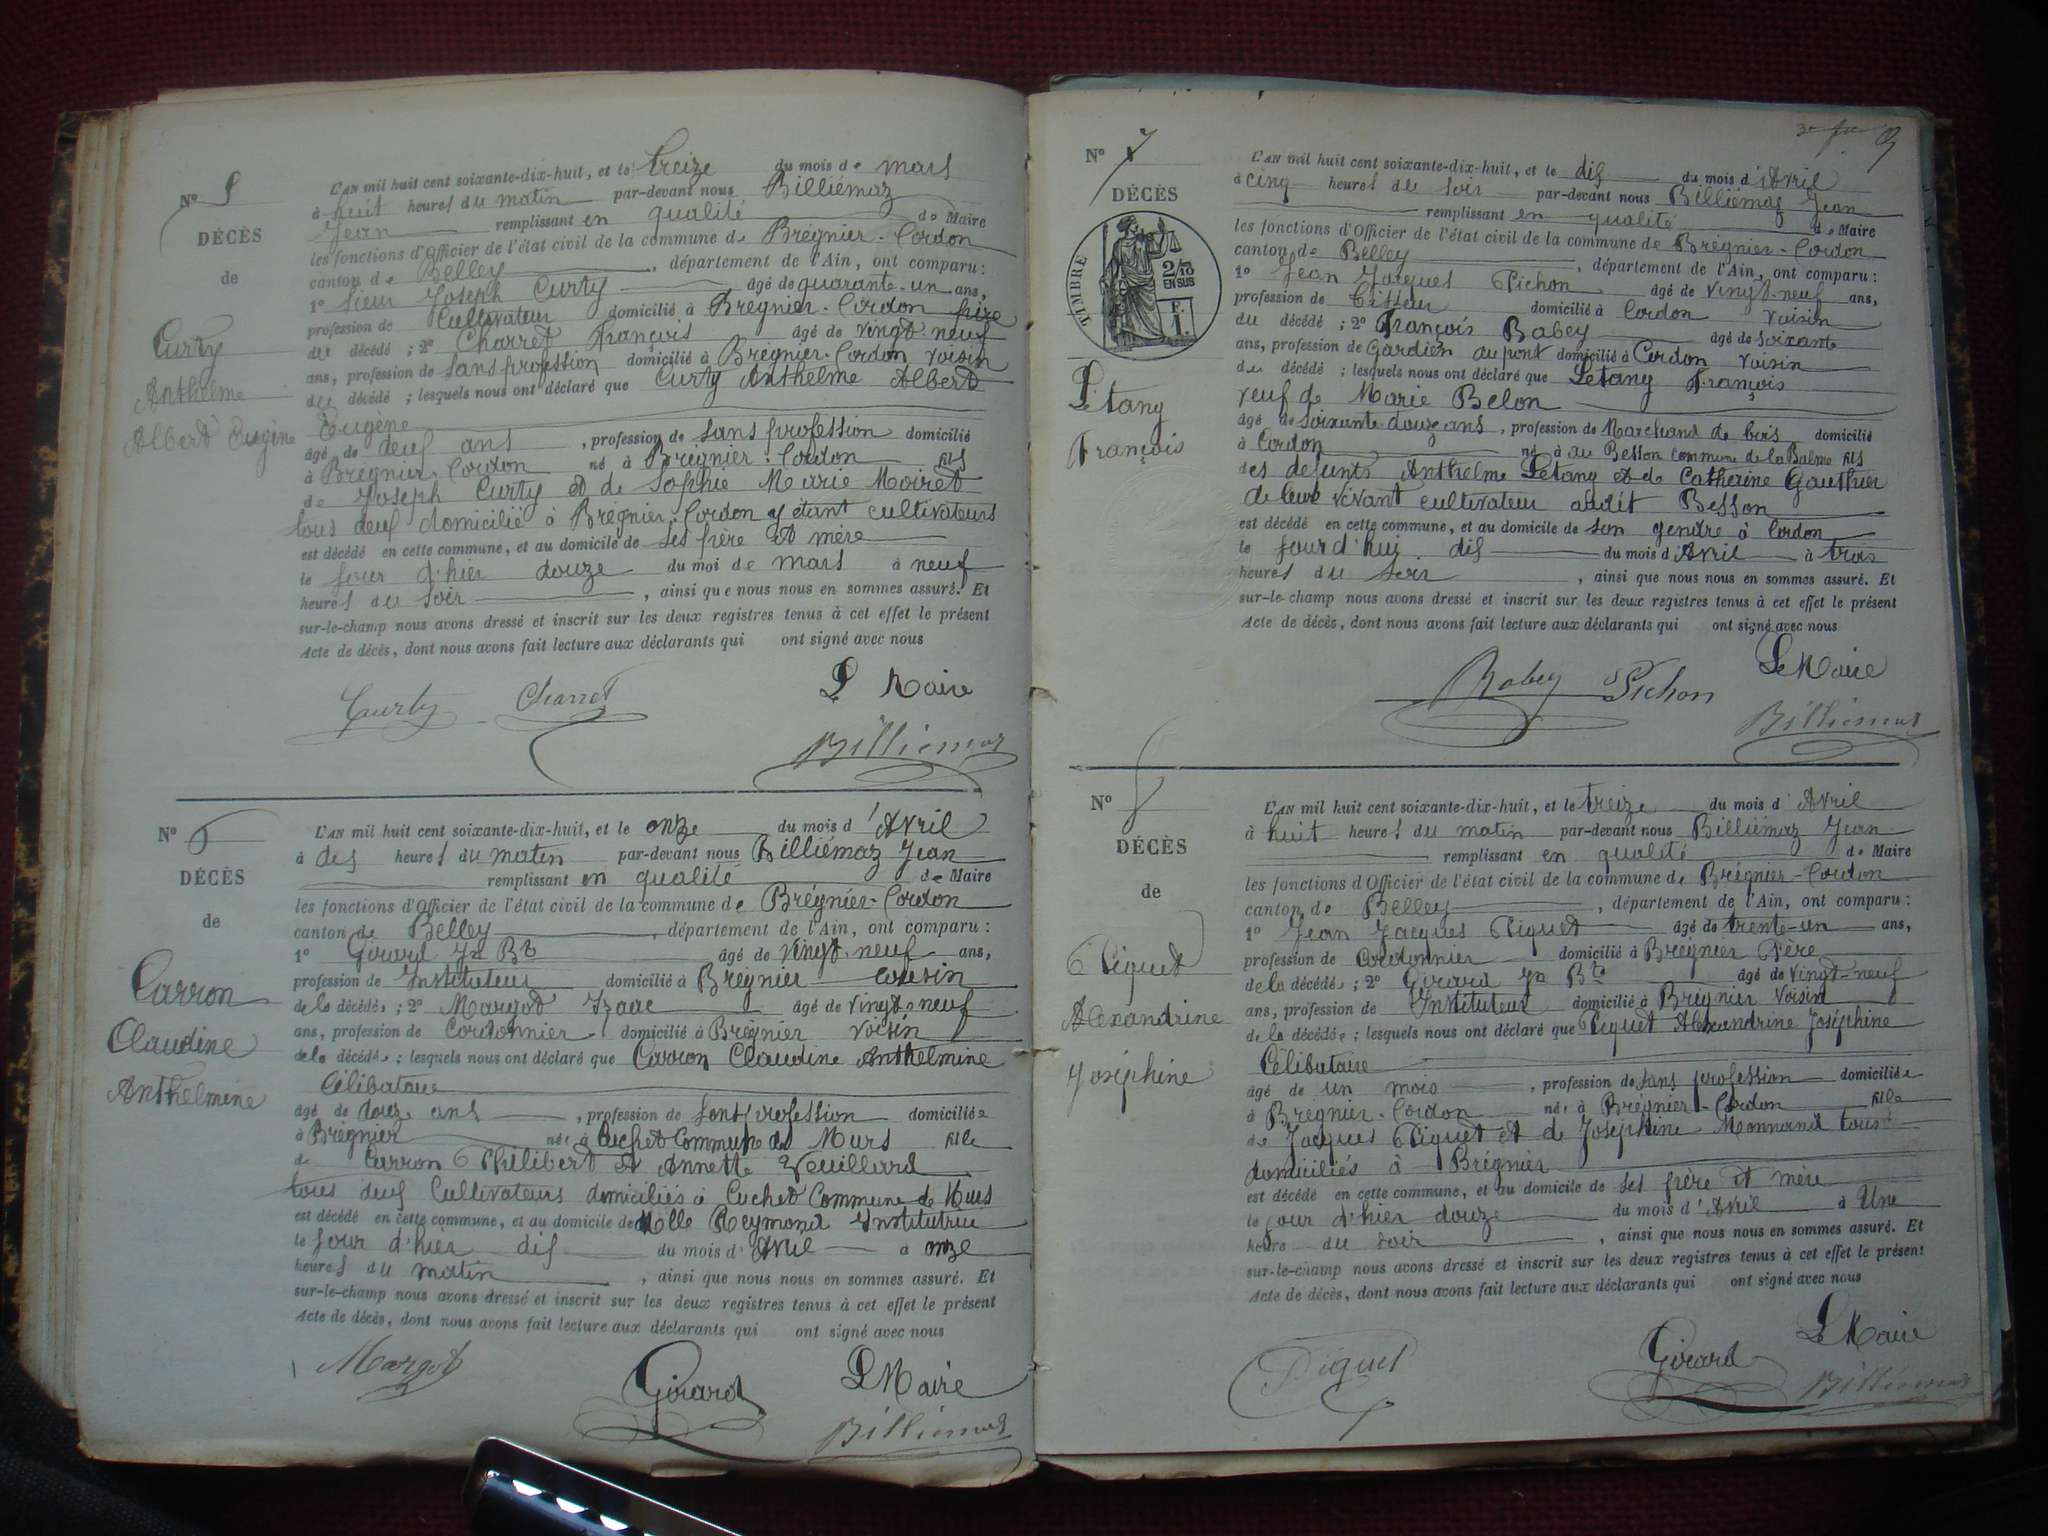 Nº 5
DÉCÈS
de
Curty
Anthelme
Albert Eugène
L'AN mil huit cent soixante-dix-huit, et le treize du mois de mars
à huit heures du matin par-devant nous Billiémaz
Jean remplissant en qualité de Maire
les fonctions d'Officier de l'état civil de la commune de Brégnier-Cordon
canton de Belley, département de l'Ain, ont comparu :
1º Sieur Joseph Curty âgé de quarante-un ans,
profession de Cultivateur domicilié à Brégnier-Cordon père
du décédé ; 2º Charret François âgé de vingt neuf
ans, profession de sans profession domicilié à Brégnier-Cordon voisin
du décédé ; lesquels nous ont déclaré que Curty Anthelme Albert
Eugène
âgé de deux ans, profession de sans profession domicilié
à Brégnier-Cordon né à Brégnier-Cordon fils
de Joseph Curty et de Sophie Marie Moiret
tous deux domicilié à Brégnier-Cordon y étant cultivateurs
est décédé en cette commune, et au domicile de ses père et mère
le jour d'hier douze du moi de mars à neuf
heures du soir, ainsi que nous nous en sommes assuré. Et
sur-le-champ nous avons dressé et inscrit sur les deux registres tenus à cet effet le présent
Acte de décès, dont nous avons fait lecture aux déclarants qui ont signé avec nous
Le Maire
Curty Charret
Billiémaz
Nº 6
DÉCÈS
de
Carron
Claudine
Anthelmine
L'AN mil huit cent soixante-dix-huit, et le onze du mois d'Avril
à dix heures du matin par-devant nous Billiémaz Jean
remplissant en qualité de Maire
les fonctions d'Officier de l'état civil de la commune de Brégnier-Cordon
canton de Belley, département de l'Ain, ont comparu :
1º Girard Jn Bte âgé de vingt-neuf ans,
profession de Instituteur domicilié à Brégnier cousin
de la décédée ; 2º Margot Izaac âgé de vingt-neuf
ans, profession de Cordonnier domicilié à Brégnier voisin
de la décédée ; lesquels nous ont déclaré que Carron Claudine Anthelmine
Célibataire
âgé de douze ans, profession de sans profession domiciliée
à Brégnier née à Cuchet Commune de Murs fille
de Carron Philibert et Annette Veuillard
tous deux Cultivateurs domiciliés à Cuchet Commune de Murs
est décédé en cette commune, et au domicile de Melle Reymond Institutrice
le jour d'hier dix du mois d'Avril à onze
heures du matin, ainsi que nous nous en sommes assuré. Et
sur-le-champ nous avons dressé et inscrit sur les deux registres tenus à cet effet le présent
Acte de décès, dont nous avons fait lecture aux déclarants qui ont signé avec nous
Margot Girard Le Maire
Billiémaz
Nº 7
DÉCÈS
TIMBRE
2/10
EN SUS
F.
1.
Letang
François
L'AN mil huit cent soixante-dix-huit, et le dix du mois d'Avril
à cinq heures du soir par-devant nous Billiémaz Jean
remplissant en qualité de Maire
les fonctions d'Officier de l'état civil de la commune de Brégnier-Cordon
canton de Belley, département de l'Ain, ont comparu :
1º Jean Jacques Pichon âgé de vingt-neuf ans,
profession de Tisseur domicilié à Cordon voisin
du décédé ; 2º François Babey âgé de soixante
ans, profession de Gardien au pont domicilié à Cordon voisin
du décédé ; lesquels nous ont déclaré que Letang François
veuf de Marie Belon
âgé de soixante-douze ans, profession de Marchand de bois domicilié
à Cordon né à au Besson commune de la Balme fils
des defunts Anthelme Letang et de Catherine Gauthier
de leur vivant cultivateur audit Besson
est décédé en cette commune, et au domicile de son gendre à Cordon
le jour d'hui dix du mois d'Avril à trois
heures du soir, ainsi que nous nous en sommes assuré. Et
sur-le-champ nous avons dressé et inscrit sur les deux registres tenus à cet effet le présent
Acte de décès, dont nous avons fait lecture aux déclarants qui ont signé avec nous
Le Maire
Babey Pichon
Billiémaz
Nº 8
DÉCÈS
de
Piquet
Alexandrine
Joséphine
L'AN mil huit cent soixante-dix-huit, et le treize du mois d'Avril
à huit heures du matin par-devant nous Billiémaz Jean
remplissant en qualité de Maire
les fonctions d'Officier de l'état civil de la commune de Brégnier-Cordon
canton de Belley, département de l'Ain, ont comparu :
1º Jean Jacques Piquet âgé de trente-un ans,
profession de Cordonnier domicilié à Brégnier Père
de la décédée ; 2º Girard Jn Bte âgé de vingt-neuf
ans, profession de Instituteur domicilié à Brégnier voisin
de la décédée ; lesquels nous ont déclaré que Piquet Alexandrine Joséphine
Célibataire
âgé de un mois, profession de sans profession domiciliée
à Brégnier-Cordon née à Brégnier-Cordon fille
de Jacques Piquet et de Joséphine Monnand tous
domiciliés à Brégnier
est décédé en cette commune, et au domicile de ses père et mère
le jour d'hier douze du mois d'Avril à Une
heure du soir, ainsi que nous nous en sommes assuré. Et
sur-le-champ nous avons dressé et inscrit sur les deux registres tenus à cet effet le présent
Acte de décès, dont nous avons fait lecture aux déclarants qui ont signé avec nous
Le Maire
Piquet Girard Billiémaz